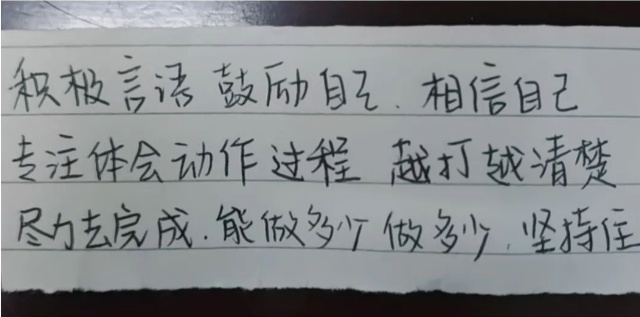 积极言语 鼓励自己. 相信自己
专注体会动作过程 越打越清楚
尽力去完成. 能做多少做多少. 坚持住